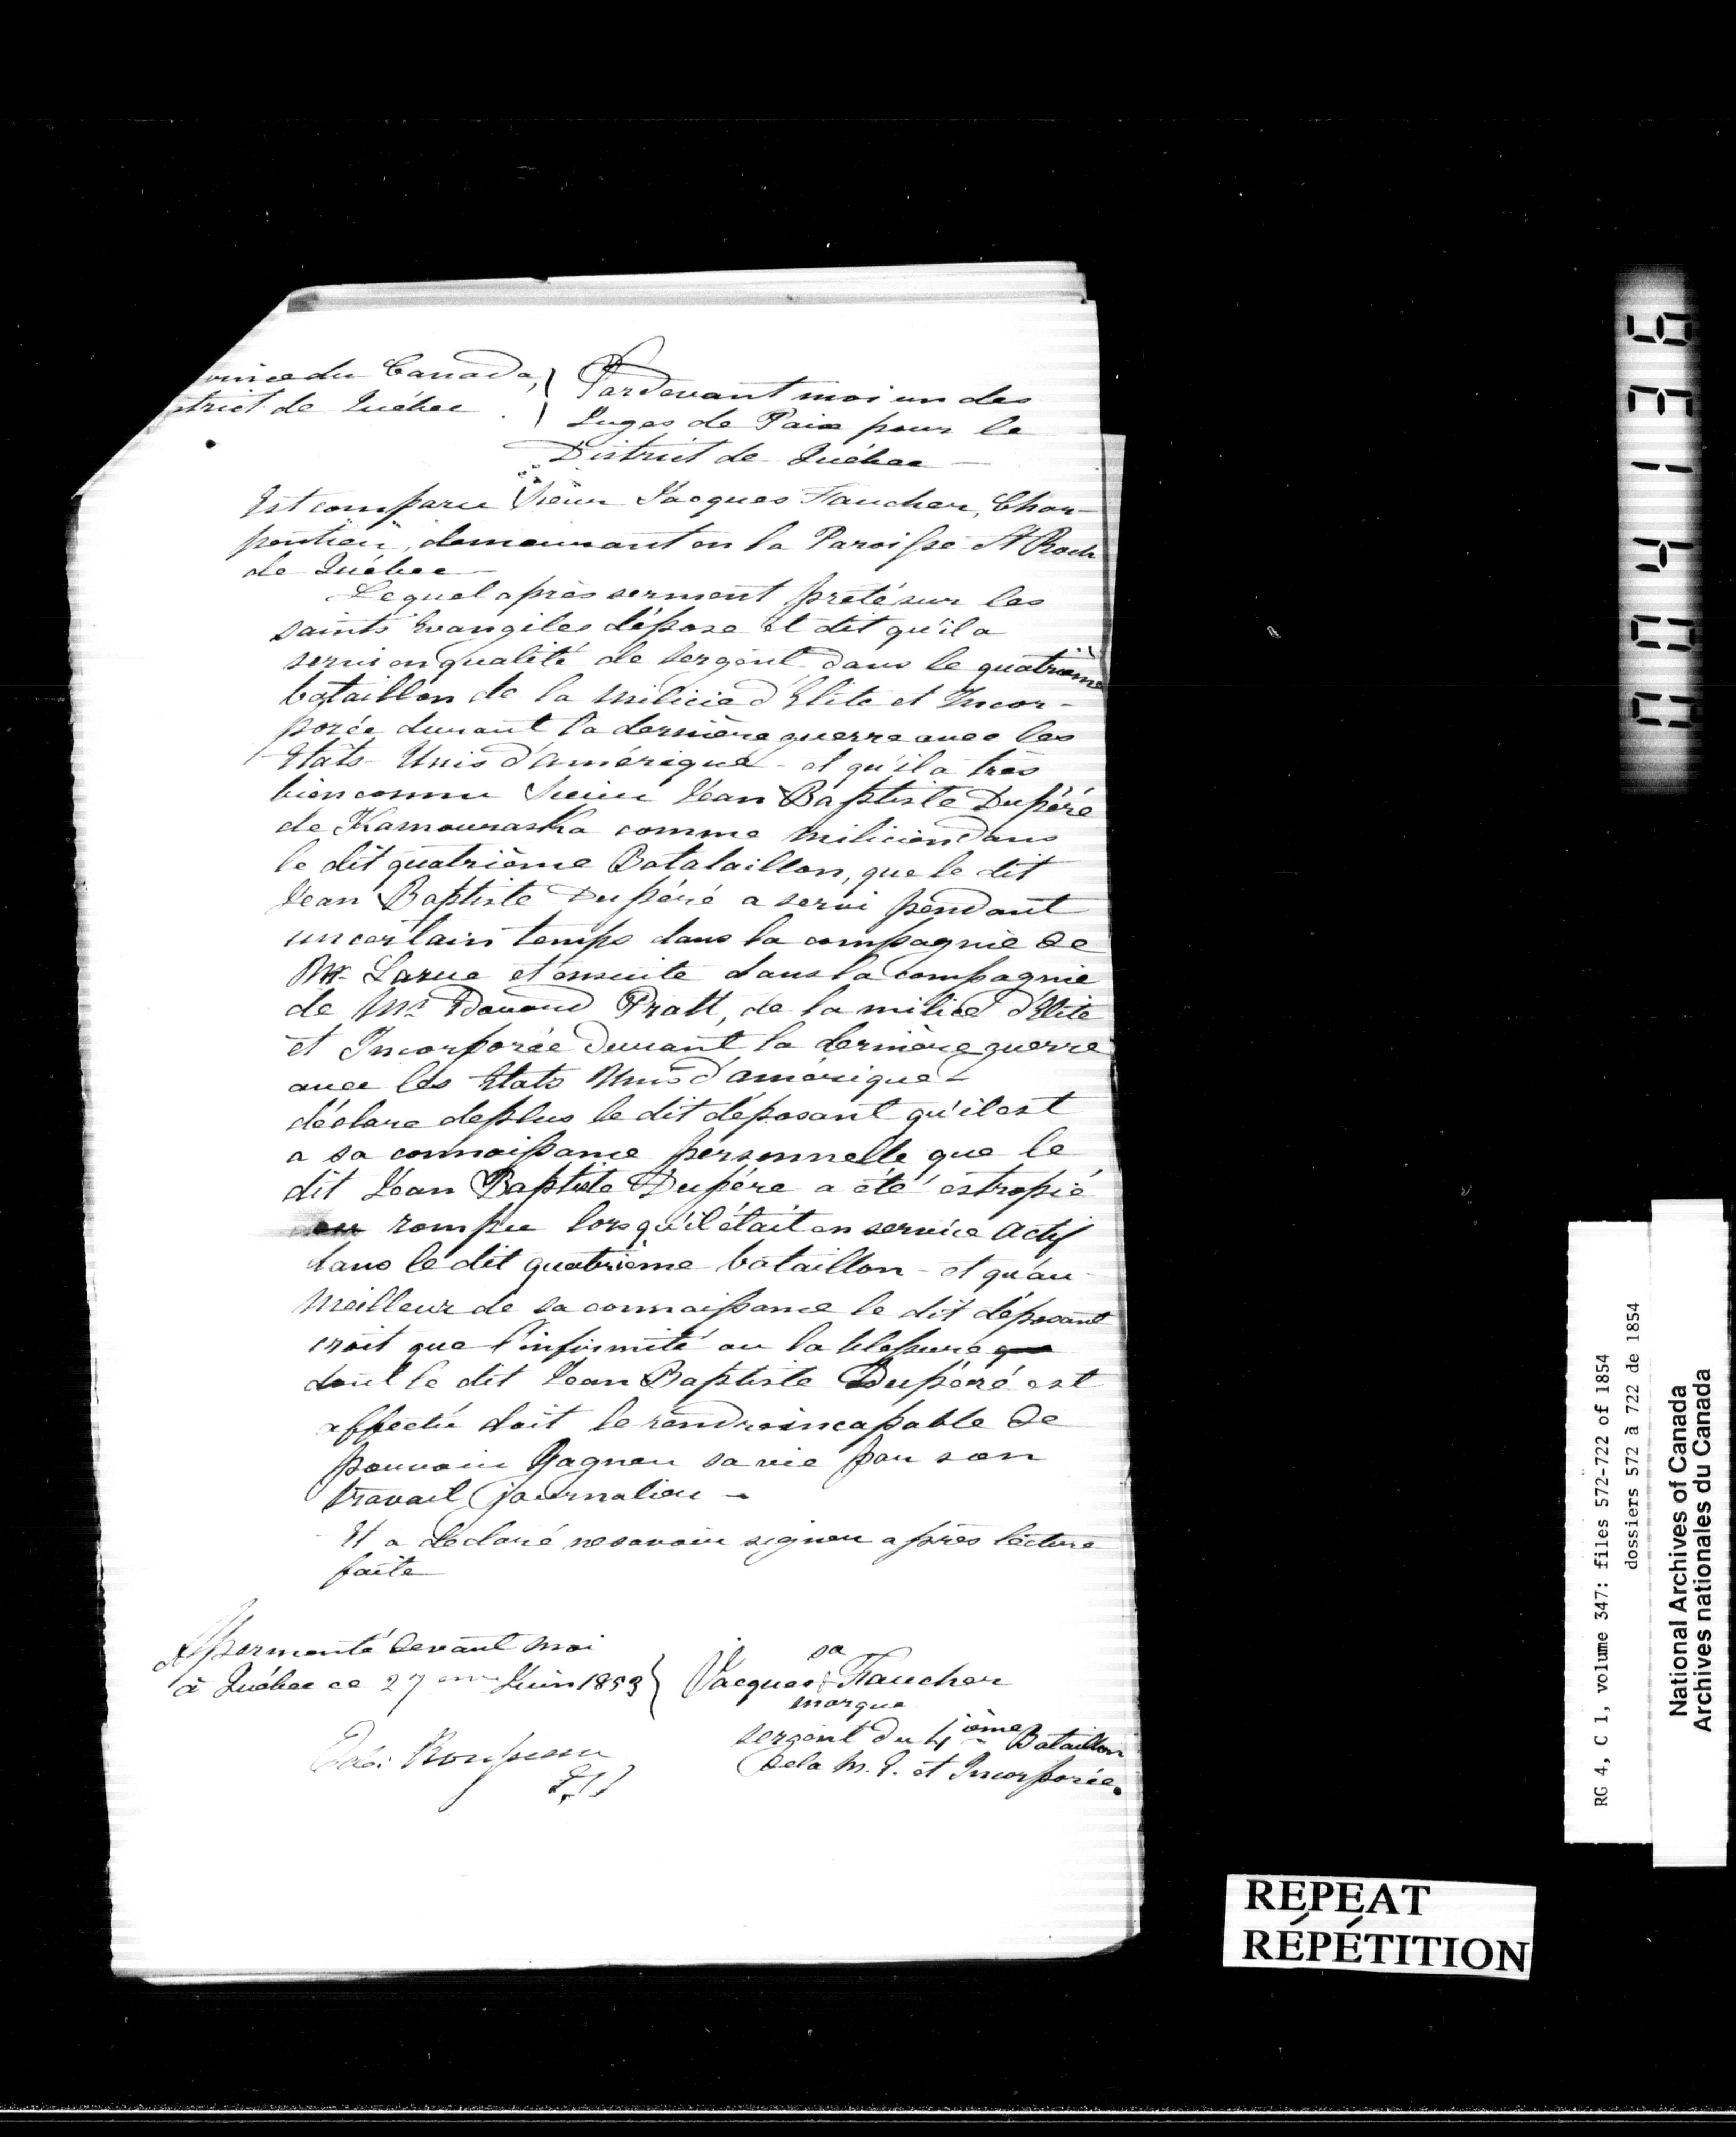 vince du Canada,
strict de Québec
Pardevant moi un des
Juges de Paix pour le
District de Québec
Est comparu Sieur Jacques Faucher, Char-
pentier, demeurant en la Paroisse St Roch
de Québec
Lequel après serment prété sur les
saints Evangiles dépose et dit qu'il a
servi en qualité de Sergent dans le quatrième
bataillon de la Milicie d'Elite et Incor-
porée durant la dernière guerre avec les
Etats-Unis d'amérique - et qu'il a très
bien connu Sieur Jean Baptiste Dupéré
de Kamouraska comme milicien dans
le dit quatrième Batalaillon, que le dit
Jean Baptiste Dupéré a servi pendant
un certain temps dans la compagnie de
Mr Larue et ensuite dans la compagnie
de Mr Edouard Pratt, de la milice d'Elite
et Incorporée durant la dernière guerre
avec les Etats Unis d'amérique -
déclare deplus le dit déposant qu'il est
a sa connaissance personnelle que le
dit Jean Baptiste Dupéré a été estropié
ou rompu lorsqu'il était en service actif
dans le dit quatrième bataillon - et qu'au
meilleur de sa connaissance le dit déposant
croit que l'infirmité ou la blessure
dont le dit Jean Baptiste Dupéré est
affecté doit le rendre incapable de
pouvoir Gagner sa vie par son
travail journalier -
Et a déclaré ne savoir signer après lecture
faite
Assermenté devant moi
à Québec ce 27 em Juin 1853
sa
Jacques + Faucher
marque
sergent du 4ième Bataillon
de la M. E. et Incorporée.
JP
004136
RG 4, C 1, volume 347: files 572-722 of 1854
dossiers 572 à 722 de 1854
National Archives of Canada
Archives nationales du Canada
REPEAT
RÉPÉTITION